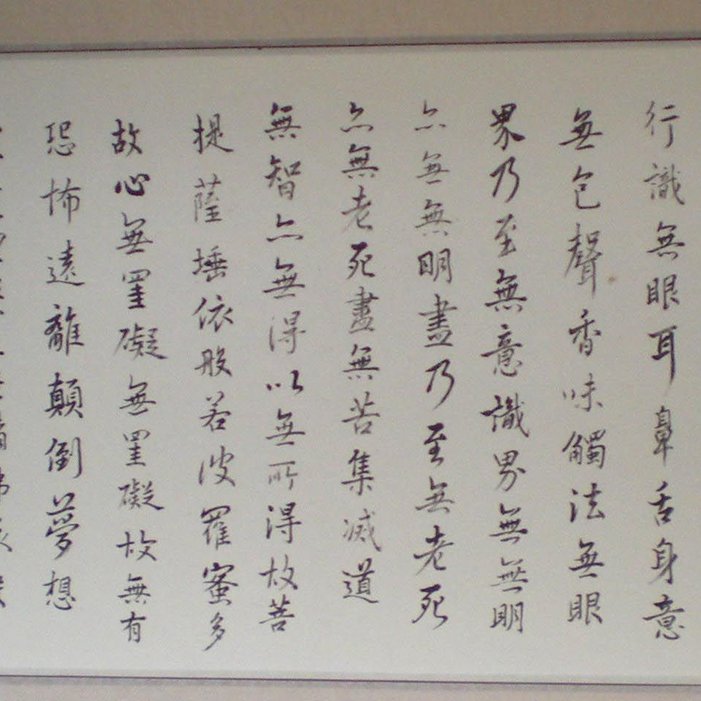 行識無眼耳鼻舌身意
無色聲香味觸法無眼
界乃至無意識界無無明
亦無無明盡乃至無老死
亦無老死盡無苦集滅道
無智亦無得以無所得故菩
提薩埵依般若波羅蜜多
故心無罣礙無罣礙故無有
恐怖遠離顛倒夢想